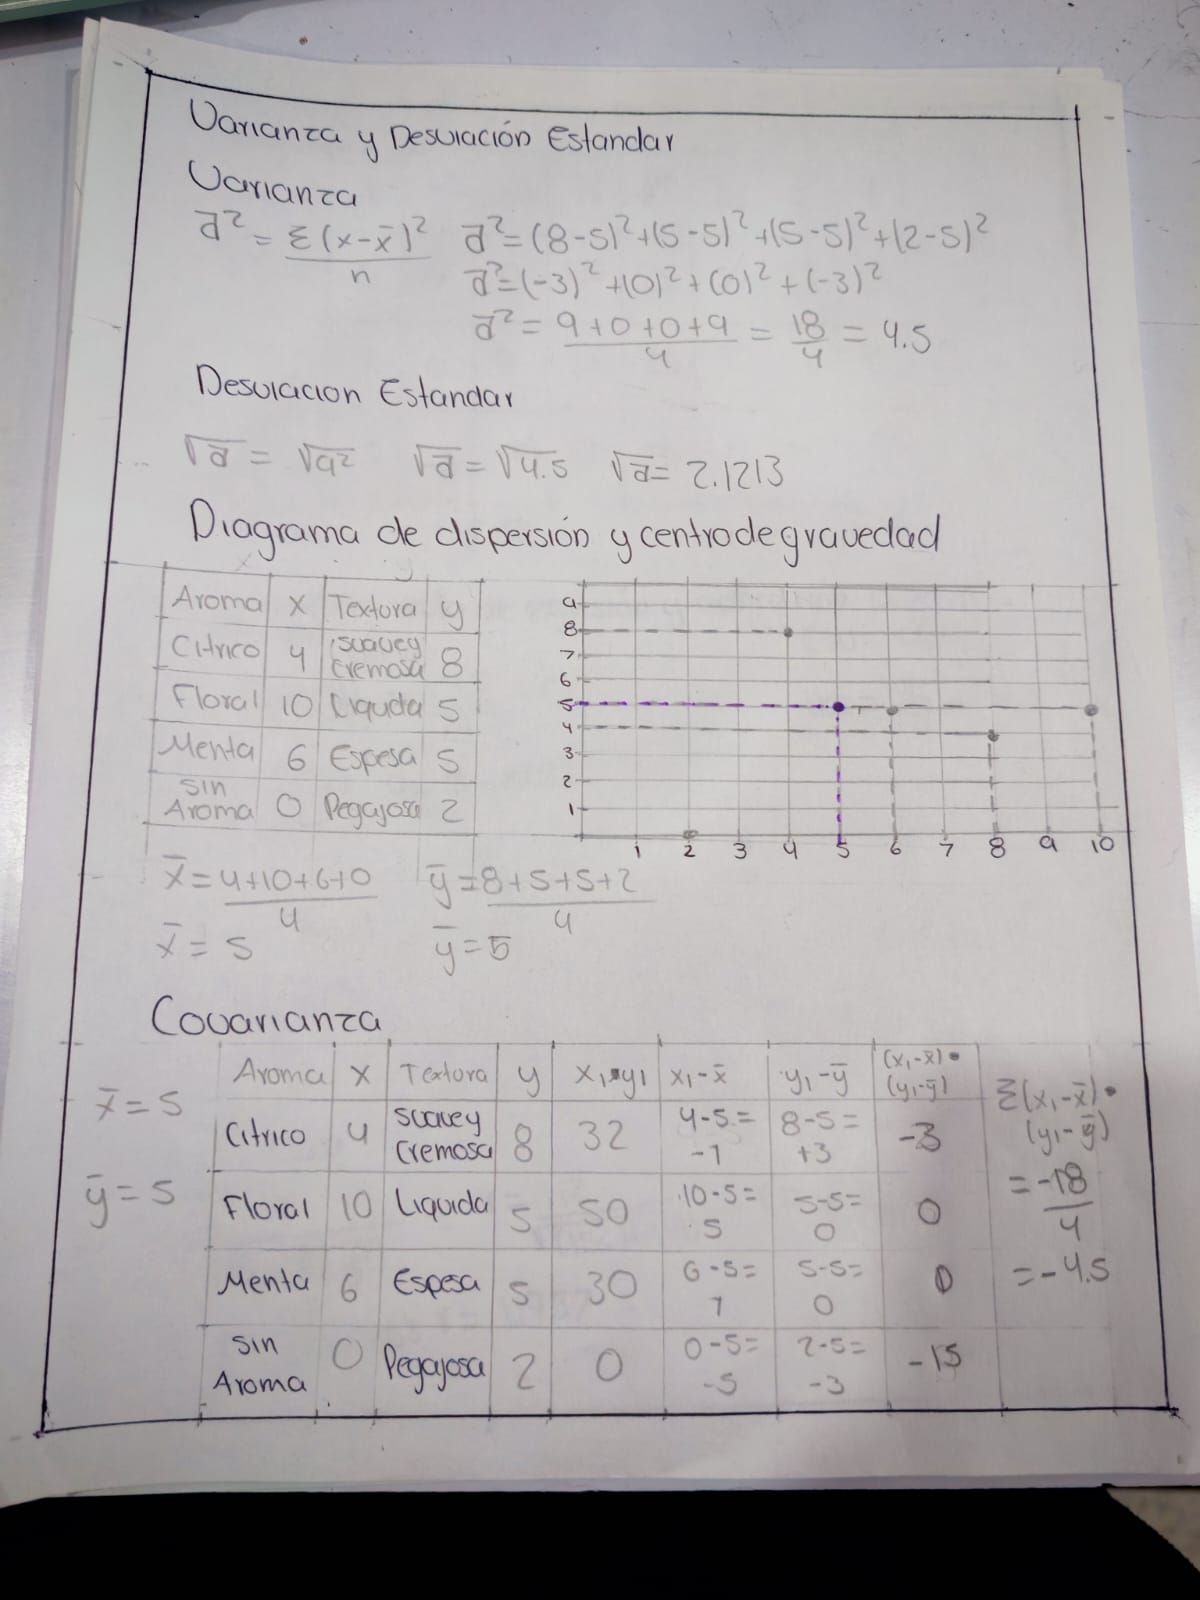 Varianza y Desviación Estandar
Varianza
σ² = Σ(x-x̄)² / n
σ²=(8-5)²+(5-5)²+(5-5)²+(2-5)²
σ²=(-3)²+(0)²+(0)²+(-3)²
σ² = 9+0+0+9 / 4 = 18/4 = 4.5
Desviacion Estandar
√σ = √σ² √σ = √4.5 √σ = 2.1213
Diagrama de dispersión y centro de gravedad
Aroma x Textura y
Citrico 4 suave y cremosa 8
Floral 10 Liquida 5
Menta 6 Espesa 5
Sin Aroma 0 Pegajosa 2
9
8
7
6
5
4
3
2
1
1 2 3 4 5 6 7 8 9 10
x̄ = 4+10+6+0 / 4
x̄ = 5
ȳ = 8+5+5+2 / 4
ȳ = 5
Covarianza
x̄ = 5
ȳ = 5
Aroma x Textura y x₁•y₁ x₁-x̄ y₁-ȳ (x₁-x̄)•(y₁-ȳ)
Citrico 4 suave y cremosa 8 32 4-5=-1 8-5=+3 -3
Floral 10 Liquida 5 50 10-5=5 5-5=0 0
Menta 6 Espesa 5 30 6-5=1 5-5=0 0
Sin Aroma 0 Pegajosa 2 0 0-5=-5 2-5=-3 -15
Σ(x₁-x̄)•
(y₁-ȳ)
= -18/4
= -4.5